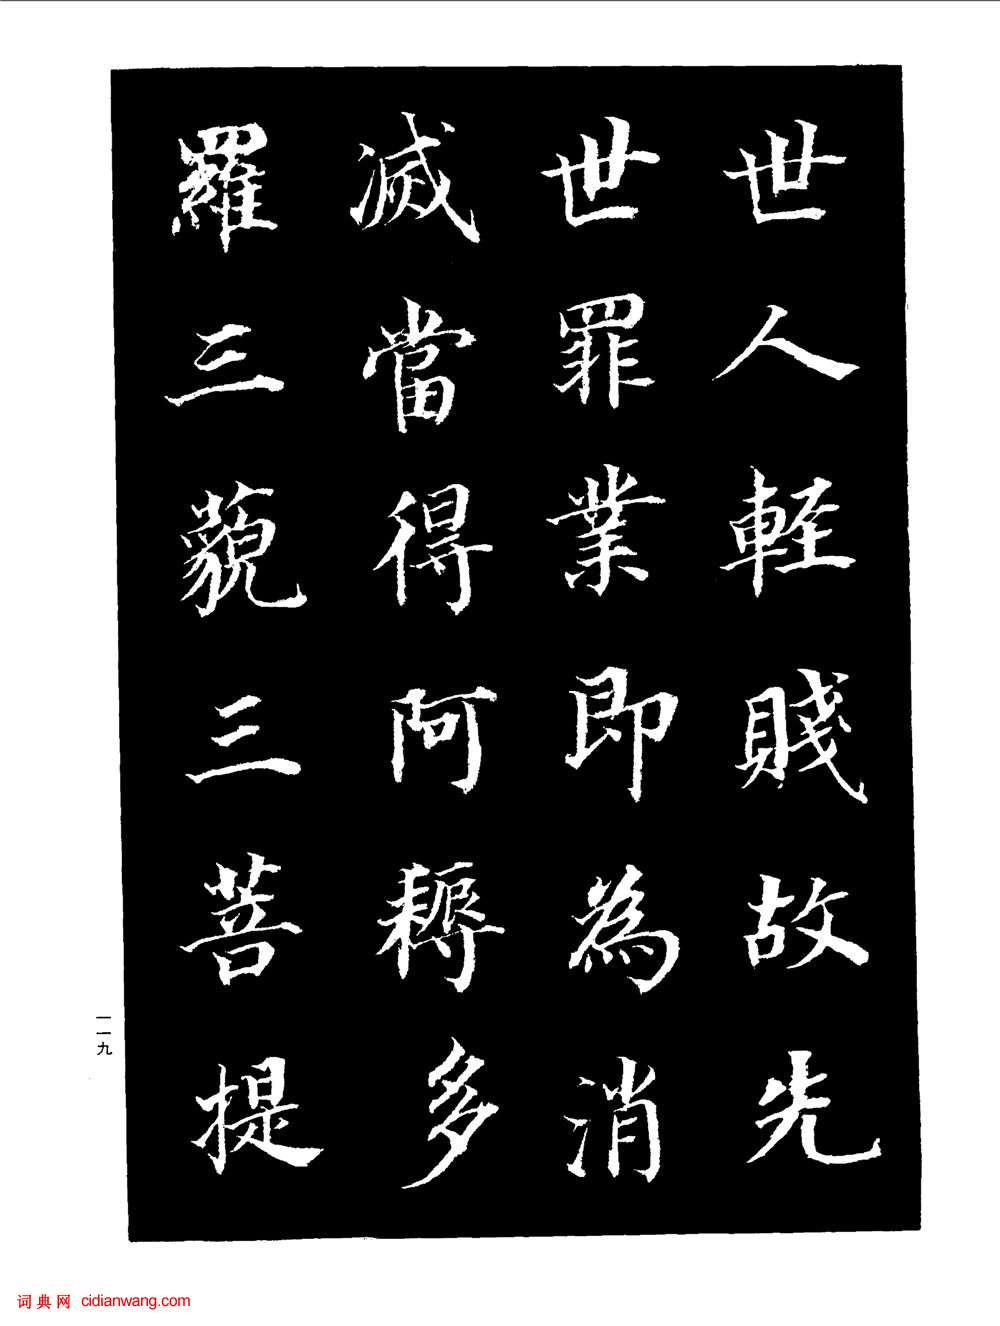 世人軽賤故先
世罪業即為消
滅當得阿耨多
羅三藐三菩提
一一九
词典网 cidianwang.com